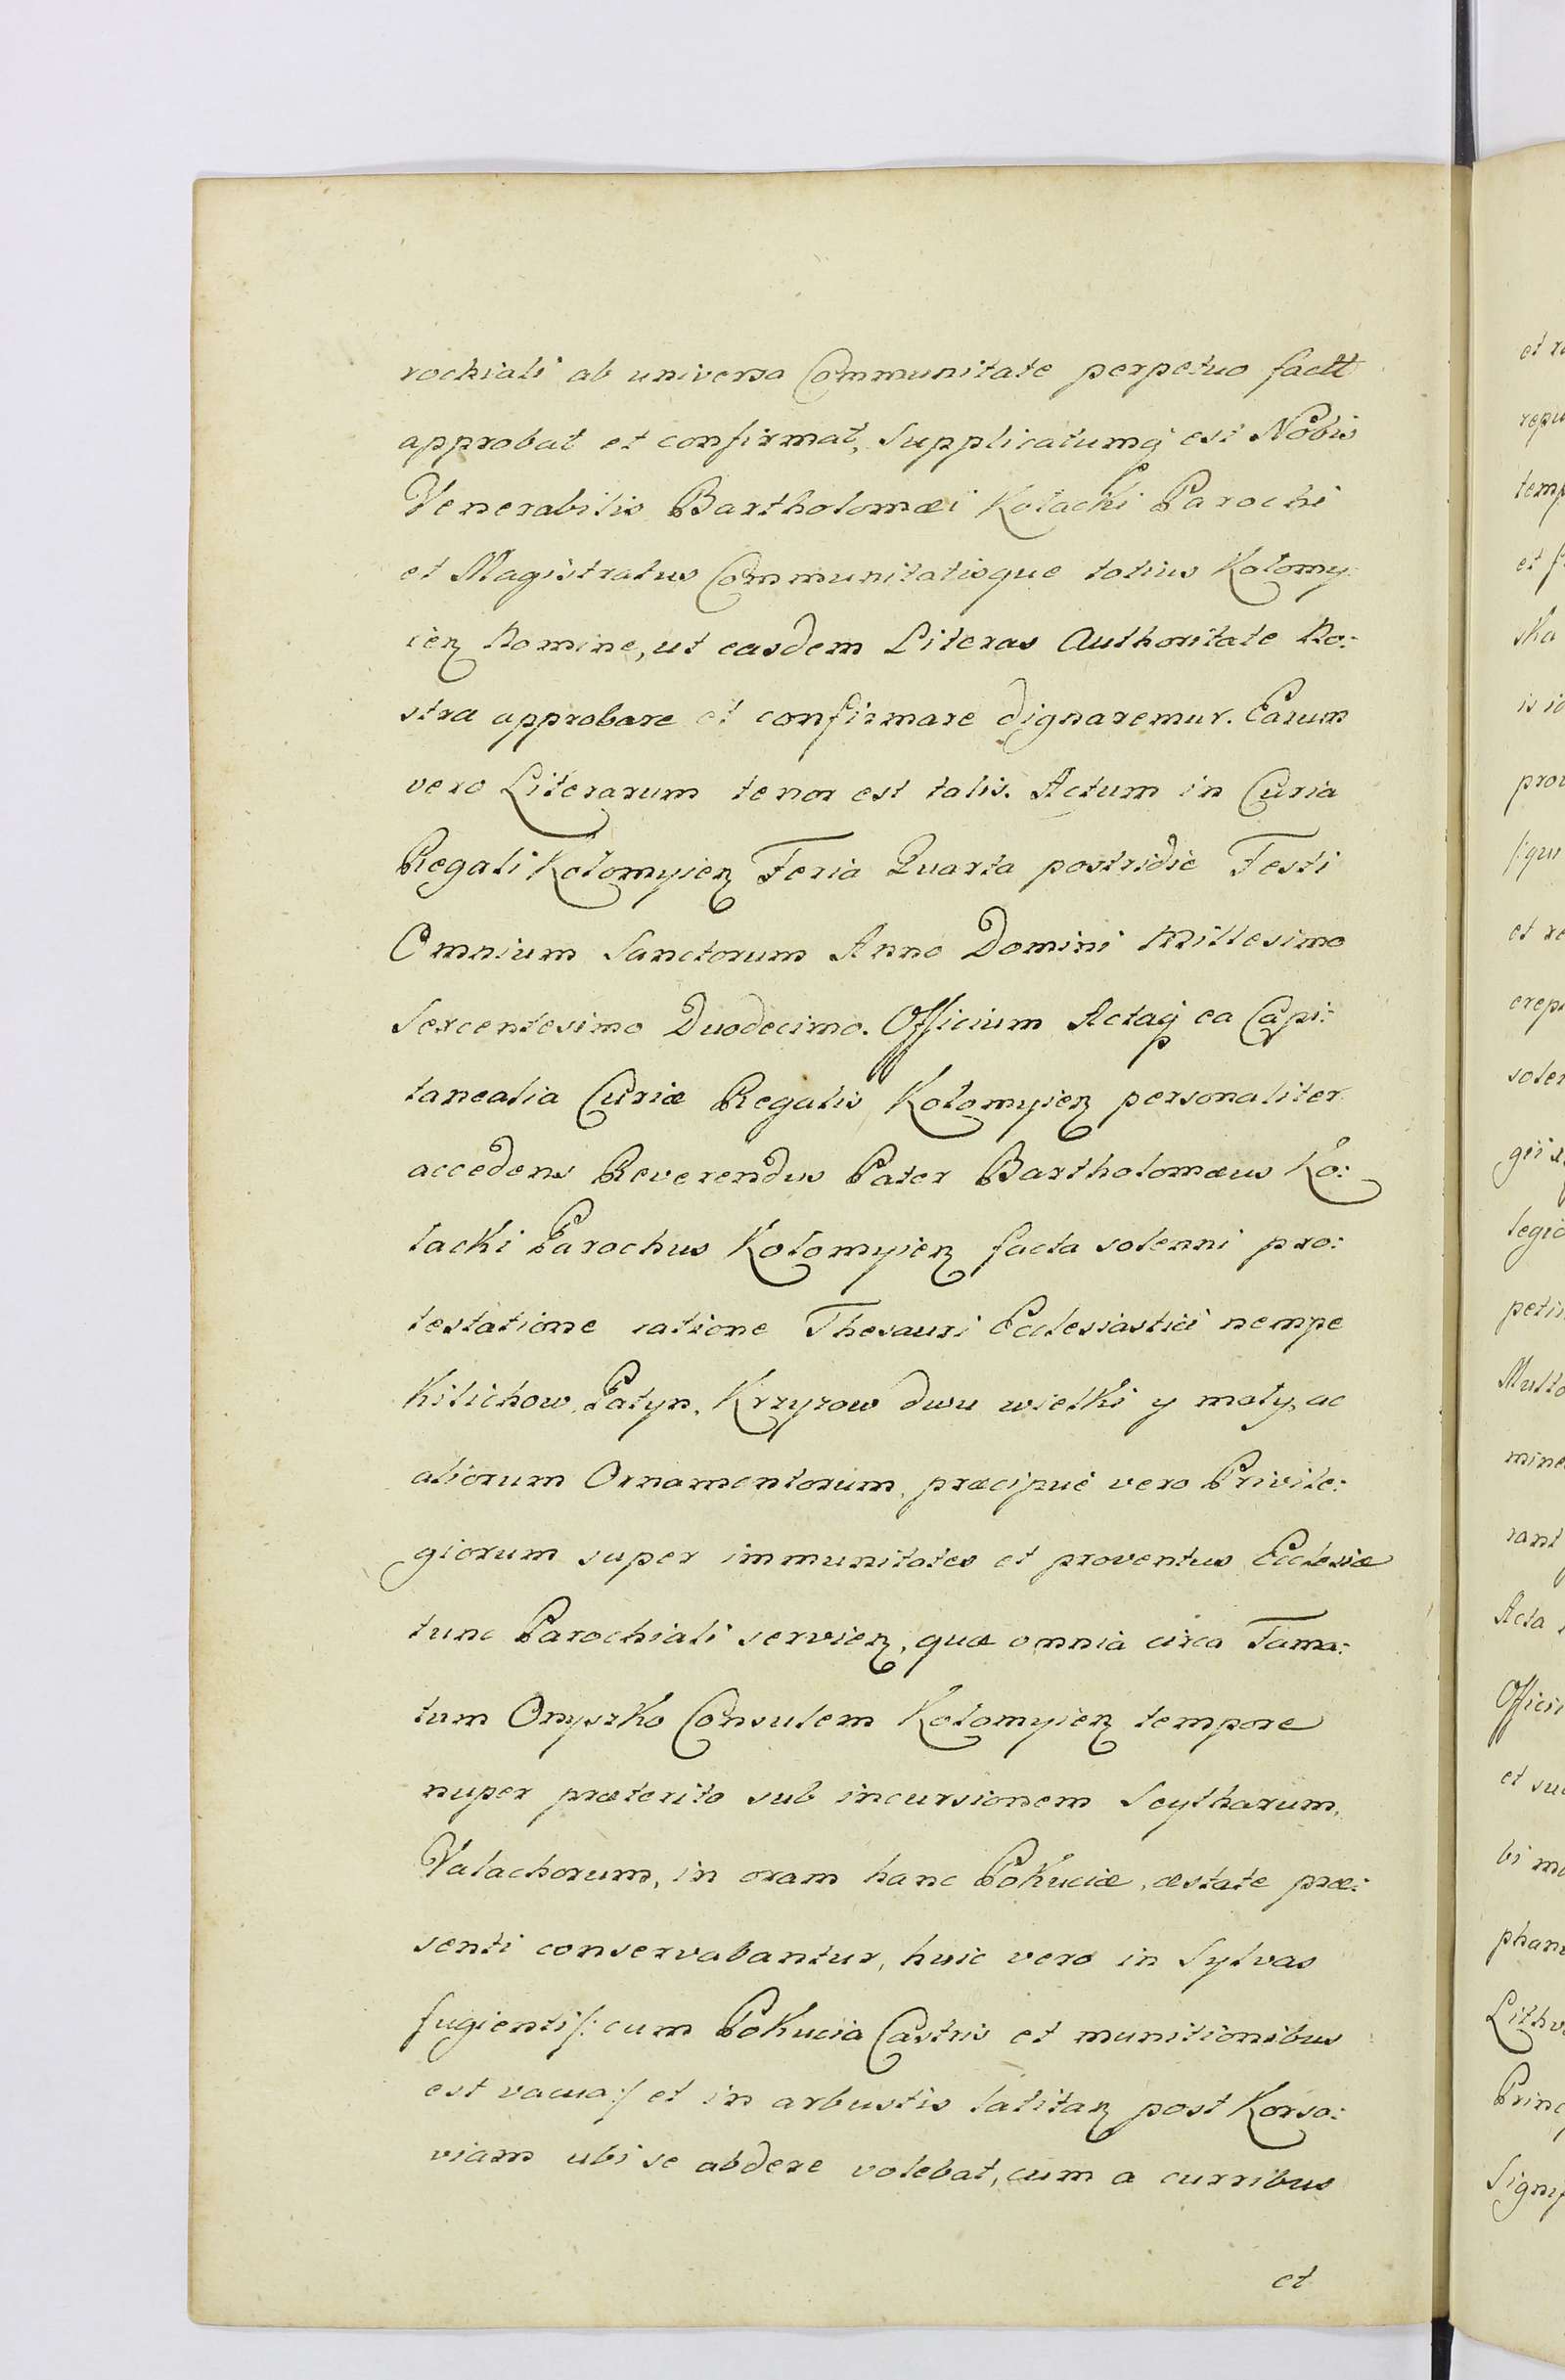 rochiali ab universa Communitate perpetuo factt
approbat et confirmat, Supplicatumq est Nobis
Venerabilis Bartholomæi Kolacki Parochi
et Magistratus Communitatisque totius Kolomy
ien Nomine, ut easdem Literas Authoritate No:
stra approbare et confirmare dignaremur. Earum
vero Literarum tenor est talis. Actum in Curia
Regali Kolomyien Feria Quarta postridie Festi
Omnium Sanctorum Anno Domini Millesimo
Sexcentesimo Duodecimo. Officium Actaq ea Capi:
tanealia Curiæ Regalis Kolomyien personaliter
accedens Reverendus Pater Bartholomæus Ko:
lacki Parochus Kolomyien facta solenni pro:
testatione ratione Thesauri Ecclesiastici nempe
Kilichow, Patyn, Krzyzow dwu wielki y maly, ac
aliorum Ornamentorum, præcipuè vero Privile:
giorum super immunitates et proventus Ecclesiæ
tunc Parochiali servien, quæ omnia circa Fama:
tum Onyszko Consulem Kolomyien tempore
nuper præterito sub incursionem Scytharum,
Valachorum, in oram hanc Pokuciæ, æstate præ:
senti conservabantur, huic vero in Sylvas
fugienti /: cum Pokucia Castris et munitionibus
est vacua :/ et in arbustis latitan post Korso:
viam ubi se abdere volebat, cum a curribus
et